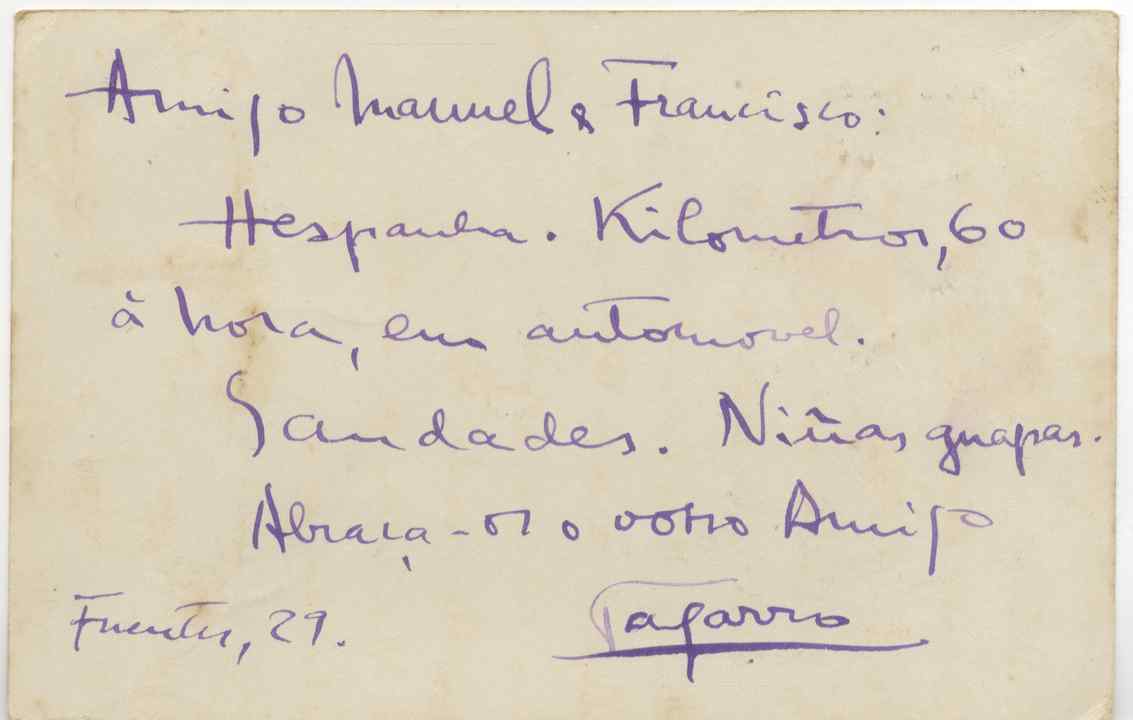 Amigo Manuel & Francisco:
Hespanha. Kilometros, 60
à hora, em automovel.
Saudades. Niñas guapas.
Abraça-os o vosso Amigo
Tagarro
Fuentes, 29.